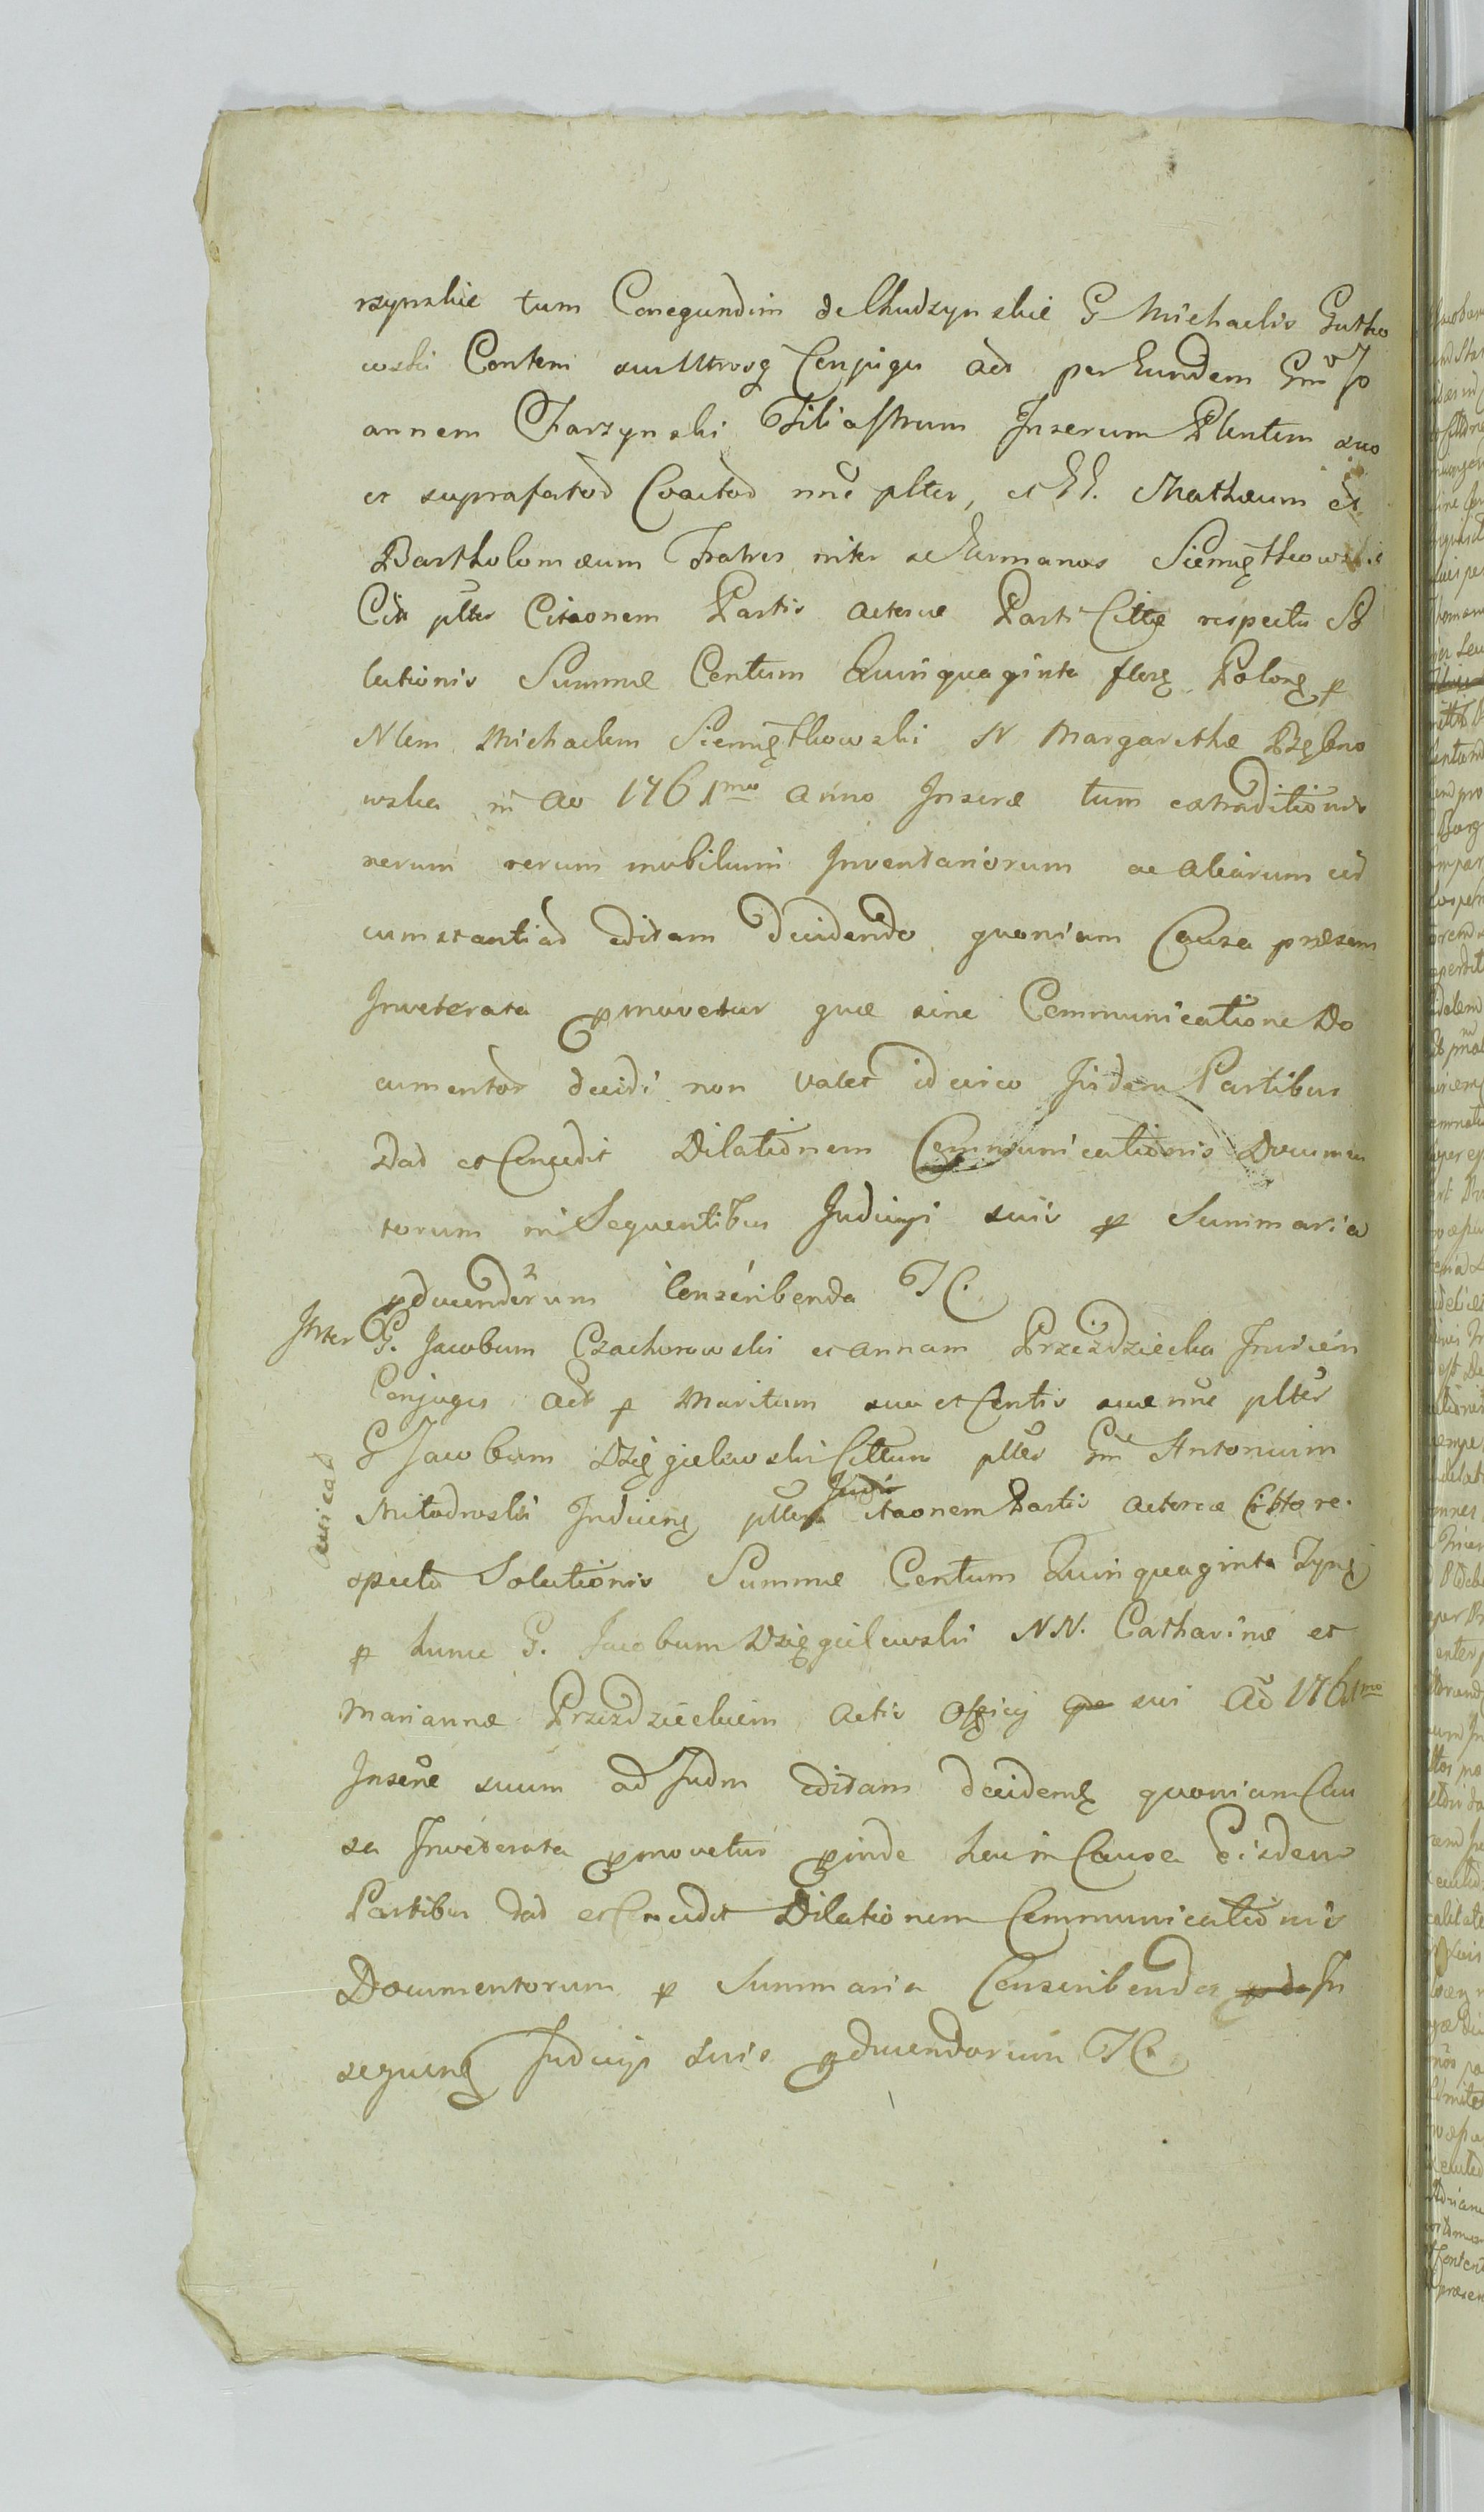 rzynskie tum Conegundim de Chudzynskie G Michaelis Gutko
wski Contem suu Utrosq Conjuges Act per Eundem Gnm Jo
annem Charzynski Filiastrum Inserum Pltentem suo
et suprafatos Coactos nne plter, et EE. Mathæum et
Bartholomæum Fratres inter se Germanos Siemiętkowskie
Cit plter Citaonem Partis Actoræ Parti Cittæ respectu So
lutionis Summæ Centum Quinquaginta flerę Polonę p
Nlem Michaelem Siemiętkowski N Margarethæ
wska in Ao 1761mo Anno Inseræ tum extraditionis
rerum mobilium Inventariorum ac aliarum cir
cumstantias editam decidendo quoniam Causa præsens
Inveterata pmovetur quæ sine Communicatione Do
cumentor decidi non valet idcirco Iisdem Partibus
Dat et Concedit Dilationem Communicationis Documen
torum in Sequentibus Judicys suis p Summaria
pducendorum Conscribenda TC.
Inter G. Jacobum Czachorowski et Annam Przezdziecka
Conjuges Act p Maritum suu et Contis suæ nne plter
G Jacobum Dzięgielewski Cittum plter Gnm Antonium
Mitodroski Inducenę plter Itaonem Partis Actoreæ Citto re
spectu Solutionis Summæ Centum Quinquaginta Tynę
p hunc G. Jacobum Dzięgielewski NN. Catharinæ et
Mariannæ Przezdzieckiem Actis Officy suis Ao 1761mo
Insere suum ad Judm editam decidenę quoniam Cau
sa Inveterata pmovetur pinde hac in Causa Eisdem
Partibus dat et Concedit Dilationem Communicationis
Documentorum p Summaria Conscribenda In
sequenę Judicys suis pducendorum TC.